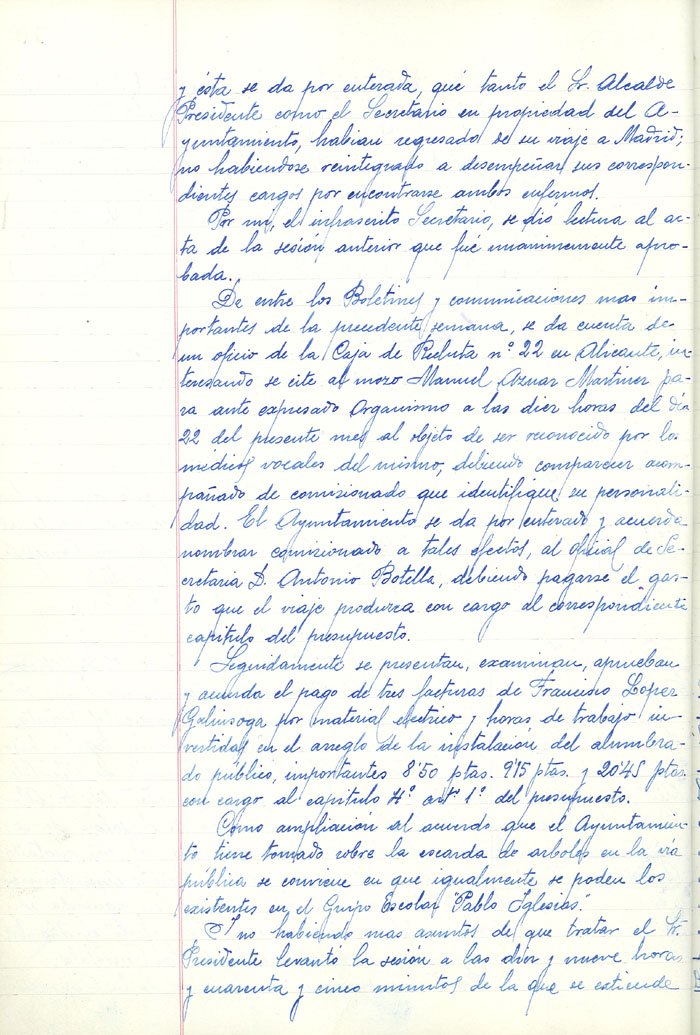 y ésta se da por enterada, que tanto el Sr. Alcalde
Presidente como el Secretario en propiedad del A-
yuntamiento, habian regresado de su viaje a Madrid;
no habiendose reintegrado a desempeñar sus correspon-
dientes cargos por encontrarse ambos enfermos.
Por mi, el infrascrito Secretario, se dió lectura al ac-
ta de la sesión anterior que fué unanimemente apro-
bada.
De entre los Boletines y comunicaciones mas im-
portantes de la precedente semana, se da cuenta de
un oficio de la Caja de Recluta nº 22 en Alicante, in-
teresando se cite al mozo Manuel Aznar Martinez pa-
ra ante expresado Organismo a las diez horas del día
22 del presente mes al objeto de ser reconocido por los
médicos vocales del mismo, debiendo comparecer acom-
pañado de comisionado que identifique su personali-
dad. El Ayuntamiento se da por enterado y acuerda
nombrar comisionado a tales efectos, al oficial de Se-
cretaria D. Antonio Botella, debiendo pagarse el gas-
to que el viaje produzca con cargo al correspondiente
capitulo del presupuesto.
Seguidamente se presentan, examinan, aprueban
y acuerda el pago de tres facturas de Francisco Lopez
Galinsoga por material electrico y horas de trabajo in-
vertidas en el arreglo de la instalación del alumbra-
do público, importantes 8'50 ptas. 9'15 ptas. y 20'45 ptas.
con cargo al capitulo 4º artº 1º del presupuesto.
Como ampliación al acuerdo que el Ayuntamien-
to tiene tomado sobre la escarda de arboles en la via
pública se conviene en que igualmente se poden los
existentes en el Grupo Escolar "Pablo Iglesias".
Y no habiendo mas asuntos de que tratar el Sr.
Presidente levantó la sesión a las diez y nueve horas
y cuarenta y cinco minutos de la que se extiende